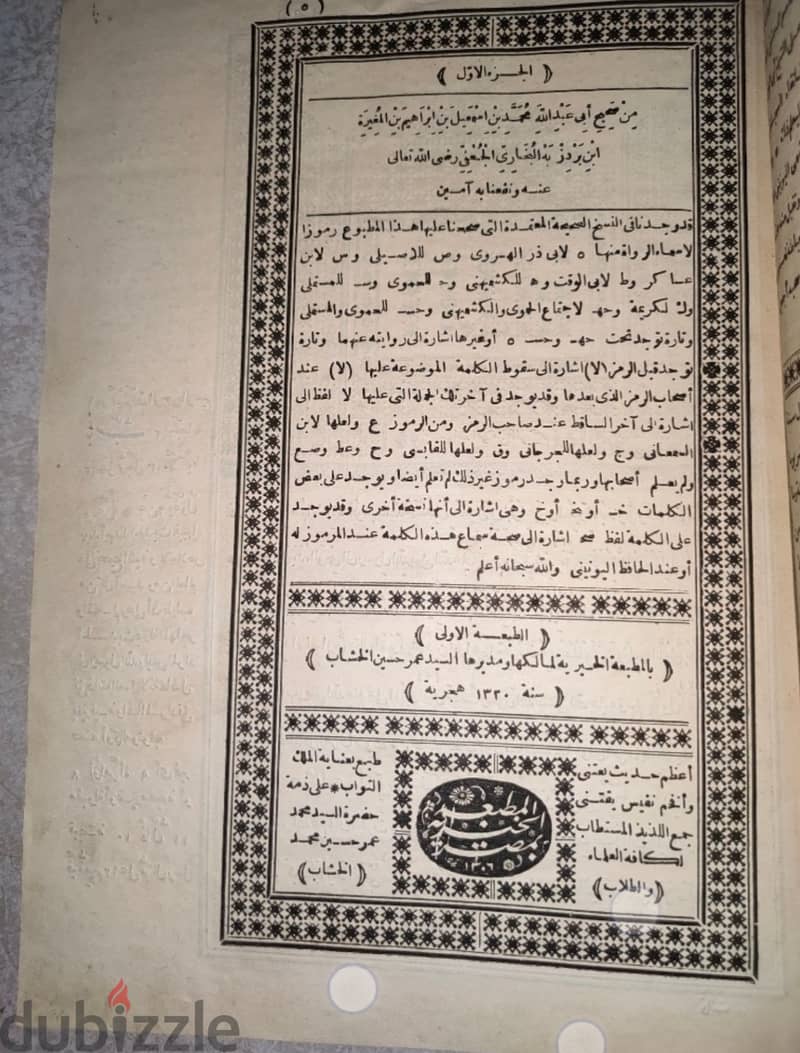 (٥)
﴿ الجزء الاوّل ﴾
مِنْ صَحِيحِ أَبِى عَبْدِ اللهِ مُحَمَّدِ بْنِ اِسْمٰعِيلَ بْنِ اِبْرَاهِيمَ بْنِ الْمُغِيرَةِ
ابْنِ بَرْدِزْبَهْ الْبُخَارِىِّ الْجُعْفِىِّ رضى الله تعالى
عنه ونفعنا به آمين
قد وجدنا فى النسخ الصحيحة المعتمدة التى صححنا عليها هذا المطبوع رموزا
لاسماء الرواة منها ه لابى ذر الهروى وص للاصيلى وس لابن
عساكر وط لابى الوقت وه للكشميهنى وحـ للحموى وسـ للمستملى
ولـ لكريمة وحهـ لاجتماع الحموى والكشميهنى وحسـ للحموى والمستملى
وتارة توجد تحت حهـ وحسـ ه أوغيرها اشارة الى روايته عنهما وتارة
توجد قبل الرمز (لا) اشارة الى سقوط الكلمة الموضوعة عليها (لا) عند
أصحاب الرمز الذى بعدها وقد يوجد فى آخر تلك الجملة التى عليها لا لفظ الى
اشارة الى آخر الساقط عند صاحب الرمز ومن الرموز ع ولعلها لابن
السمعانى وج ولعلها للجرجانى وق ولعلها للقابسى وح وعط وصع
ولم يعلم أصحابها وربما وجد رموز غير ذلك لم تعلم أيضا ويوجد على بعض
الكلمات خـ أو نخ أو خ وهى اشارة الى أنها نسخة أخرى وقد يوجد
على الكلمة لفظ صح اشارة الى صحة سماع هذه الكلمة عند المرموز له
أو عند الحافظ اليونينى والله سبحانه أعلم
﴿ الطبعة الاولى ﴾
﴿ بالمطبعة الخيرية لمالكها ومديرها السيد عمر حسين الخشاب ﴾
﴿ سنة ١٣٢٠ هجرية ﴾
أعظم حديث يعتنى
وأفخم نفيس يقتنى
جمع اللذيذ المستطاب
لكافة العلماء
﴿والطلاب﴾
المطبعة
الخيرية
بمصر
١٣٠٦
طبع بعناية الملك
التواب * على ذمة
حضرة السيد محمد
عمر حسين محمد
﴿الخشاب﴾
dubizzle